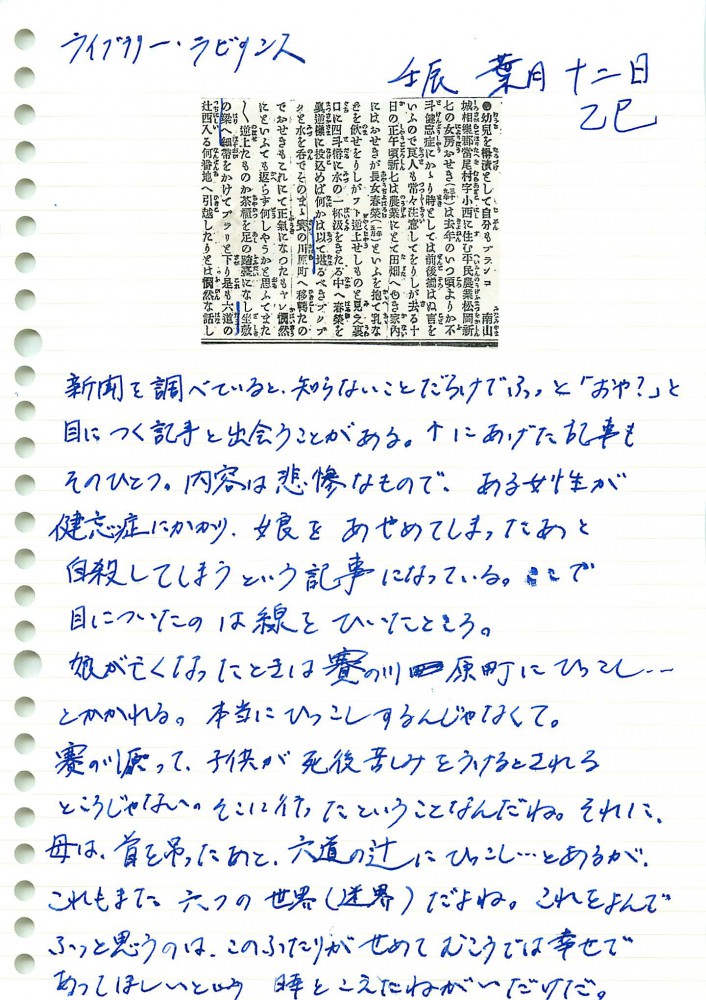 ライブラリー・ラビリンス
壬辰 葉月 十二日
乙巳
●幼兒を殺して自分もブランコ 南山
城相樂郡當尾村字小西に住む平民農業松岡新
七の女房おせき(三十)は去年のいつ頃よりか不
斗健忘症にかゝり時としては前後揃はぬ言を
いふので良人も常々注意してをりしが去る十
日の正午頃新七は農業にとて田畑へ出き家内
にはおせきが長女春榮(二年)といふを抱て乳な
を飲せをりしがフト逆上せしものと見え裏
口に四斗樽に水の一杯汲をきたる中へ春榮を
眞逆樣に投込めば何かは以て堪るべきブツブ
クと水を呑でそのまゝ賽の川原町へ移轉たの
でおせきもそれにて正氣になつたもヤレ憫然
にといふても返らず何しやうかと思ふてまた
〱逆上たものか茶棚を足の踏臺になし座敷
の梁へ細帶をかけてブラリと下り是も六道の
辻西入る何番地へ引越したりとは憫然な話し
新聞を調べていると、知らないことだらけでふっと「おや?」と
目につく記事と出会うことがある。↑にあげた記事も
そのひとつ。内容は悲惨なもので、ある女性が
健忘症にかかり、娘をあやめてしまったあと
自殺してしまうという記事になっている。ここで
目についたのは線をひいたところ。
娘が亡くなったときは賽の川原町にひっこし…
とかかれる。本当にひっこしするんじゃなくて。
賽の川原って、子供が死後苦しみをうけるとされる
ところじゃない。そこに行ったということなんだね。それに、
母は、首を吊ったあと、六道の辻にひっこし…とあるが、
これもまた六つの世界(迷界)だよね。これをよんで
ふっと思うのは、このふたりがせめてむこうでは幸せで
あってほしいという 時をこえたねがいだけだ。